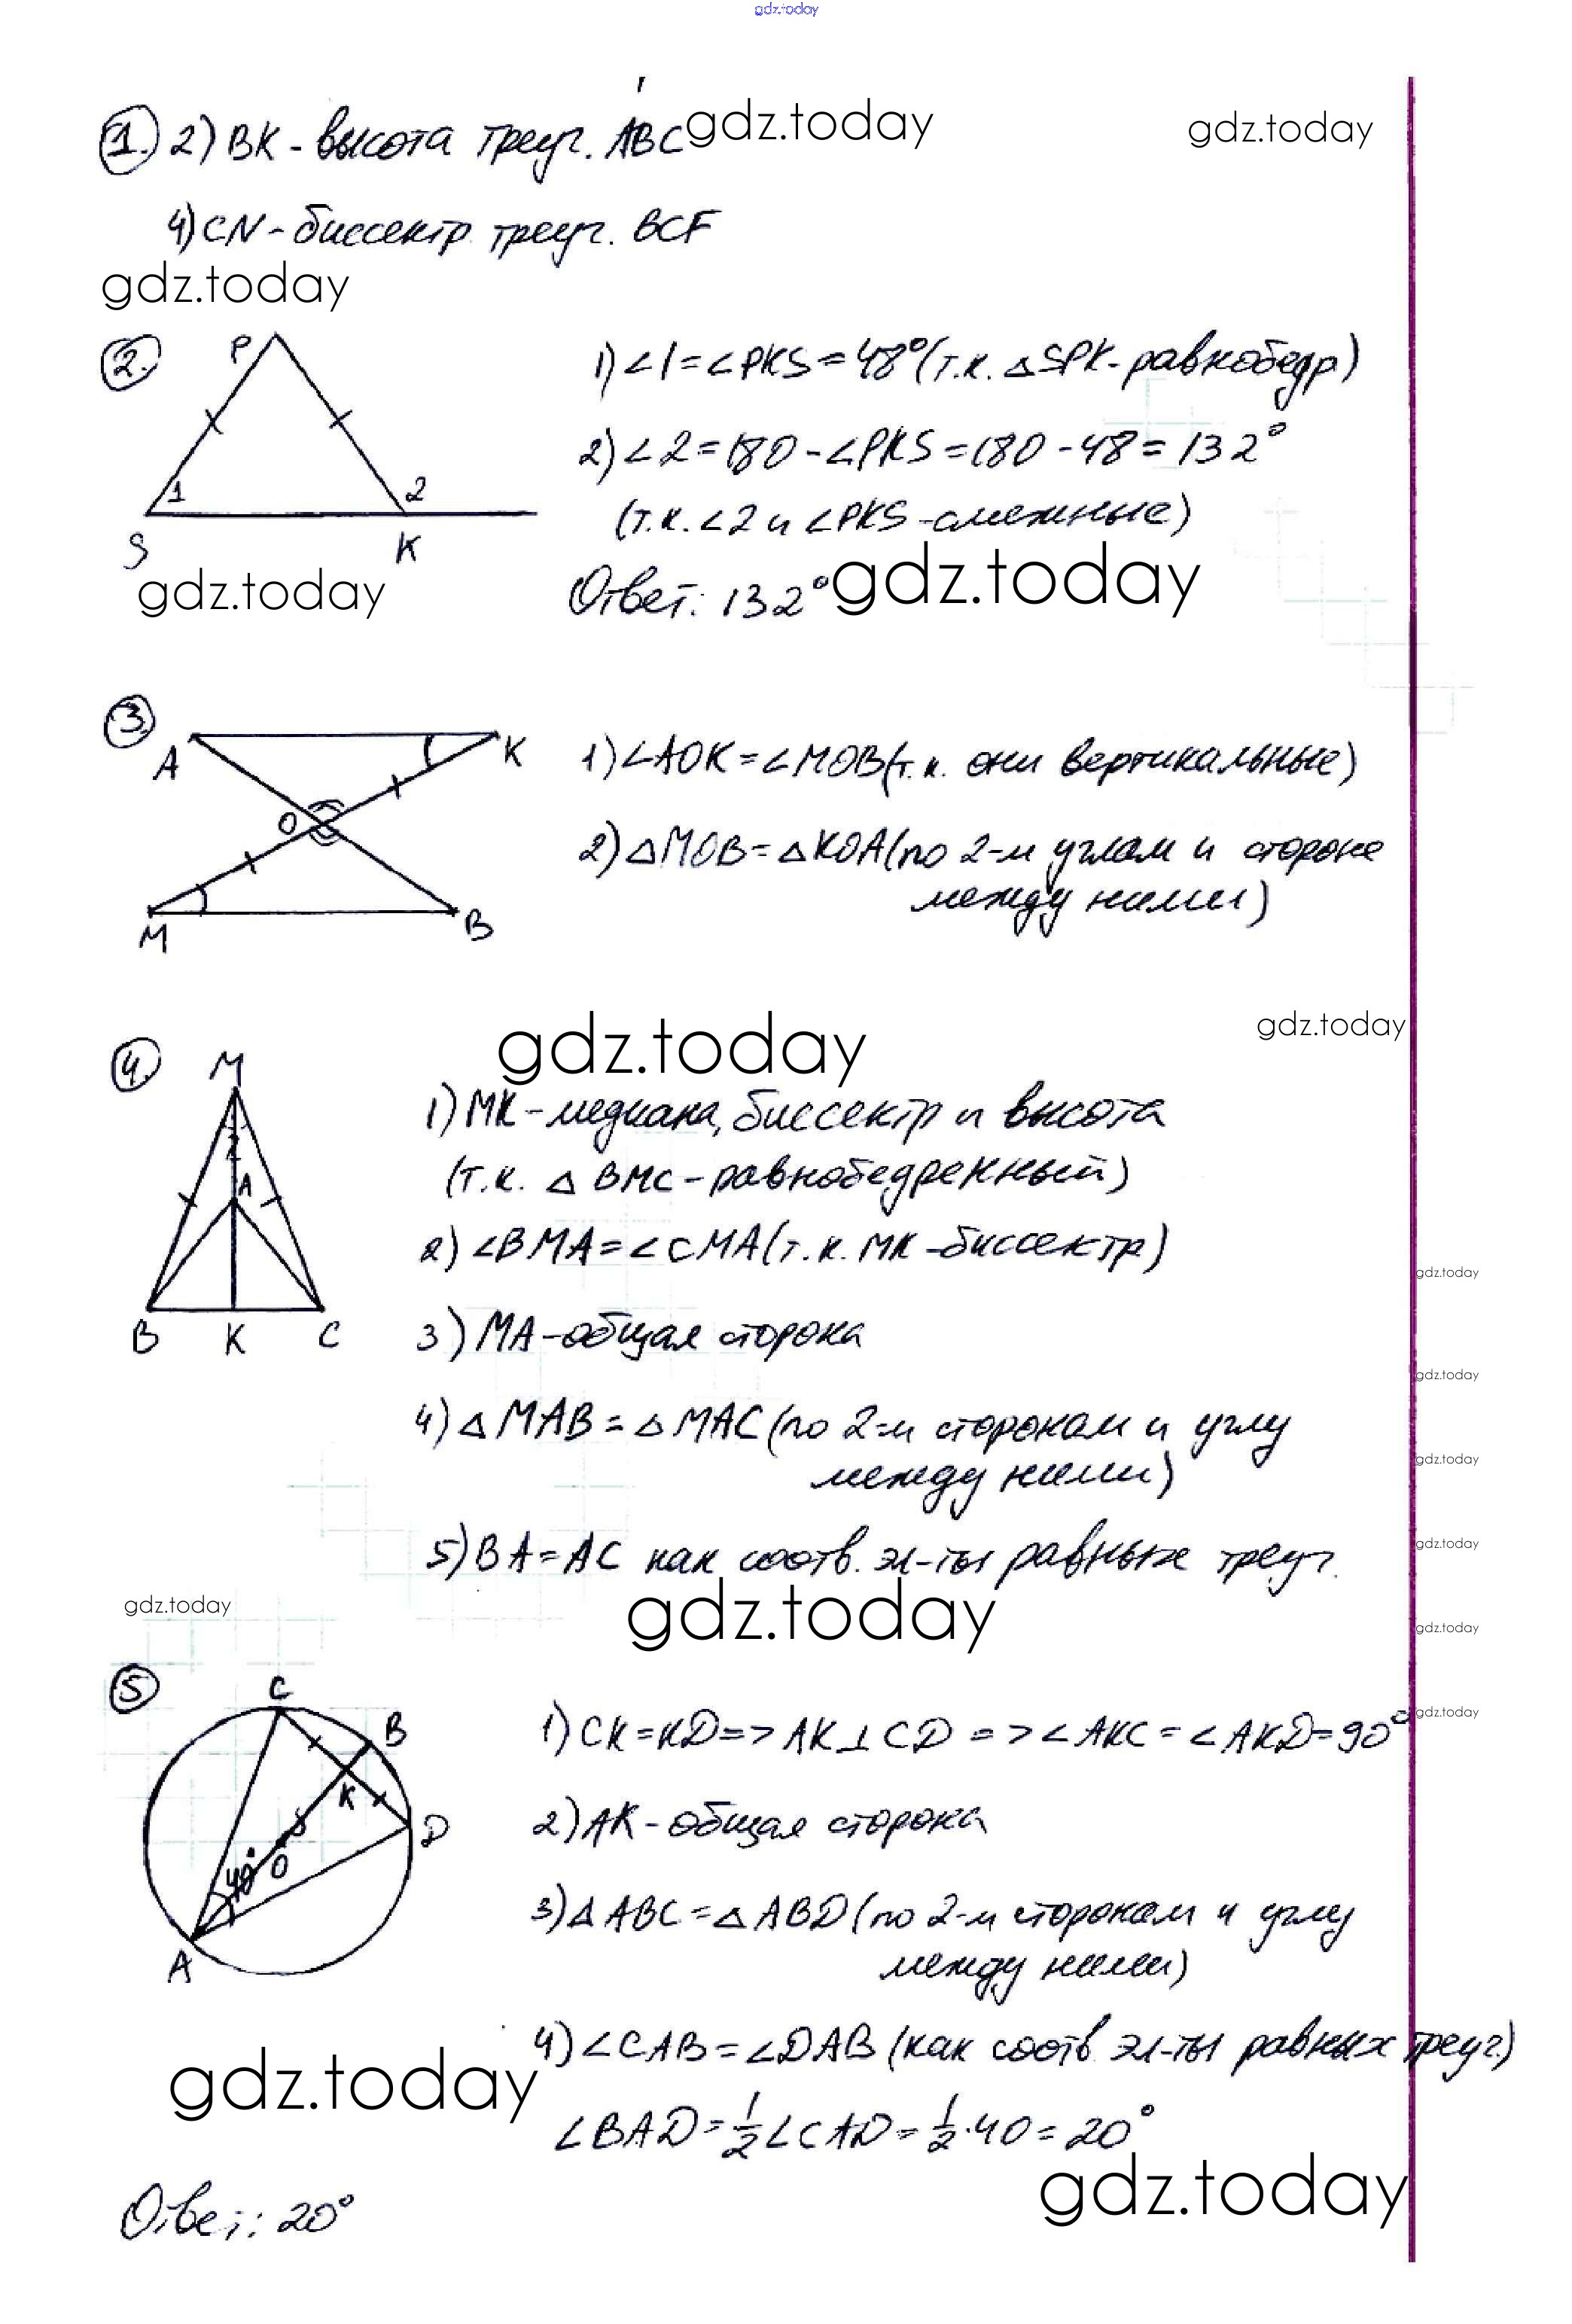 gdz.today
1. 2) ВК - высота треуг. АВС gdz.today gdz.today
4) CN - биссектр треуг. BCF
gdz.today
2. P 1) ∠1 = ∠PKS = 48° (т.к. △SPK - равнобедр)
2) ∠2 = 180 - ∠PKS = 180 - 48 = 132°
1 2
(т.к. ∠2 и ∠PKS - смежные)
S K
gdz.today Ответ: 132° gdz.today
3
A K 1) ∠AOK = ∠MOB (т.к. они вертикальные)
O 2) △MOB = △KOA (по 2-м углам и стороне
между ними)
M B
gdz.today gdz.today
4. M
1) МК - медиана, биссектр и высота
(т.к. △ ВМС - равнобедренный)
A
2) ∠BMA = ∠CMA (т.к. МК - биссектр)
gdz.today
B K C 3) МА - общая сторона
gdz.today
4) △ MAB = △ MAC (по 2-м сторонам и углу
между ними)
gdz.today
5) BA = AC как соотв. эл-ты равных треуг.
gdz.today
gdz.today gdz.today
gdz.today
5 C
B 1) CK = KD => AK ⊥ CD => ∠AKC = ∠AKD = 90°
gdz.today
K
D 2) АК - общая сторона
O
40°
3) △ ABC = △ ABD (по 2-м сторонам и углу
между ними)
A
4) ∠CAB = ∠DAB (как соотв. эл-ты равных треуг.)
gdz.today
∠BAD = 1/2 ∠CAD = 1/2 · 40 = 20°
gdz.today
Ответ: 20°